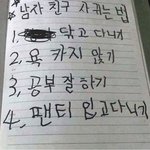 *남자 친구 사귀는 법
1. 닦고 다니기
2. 욕 하지 않기
3. 공부 잘 하기
4. 팬티 입고다니기